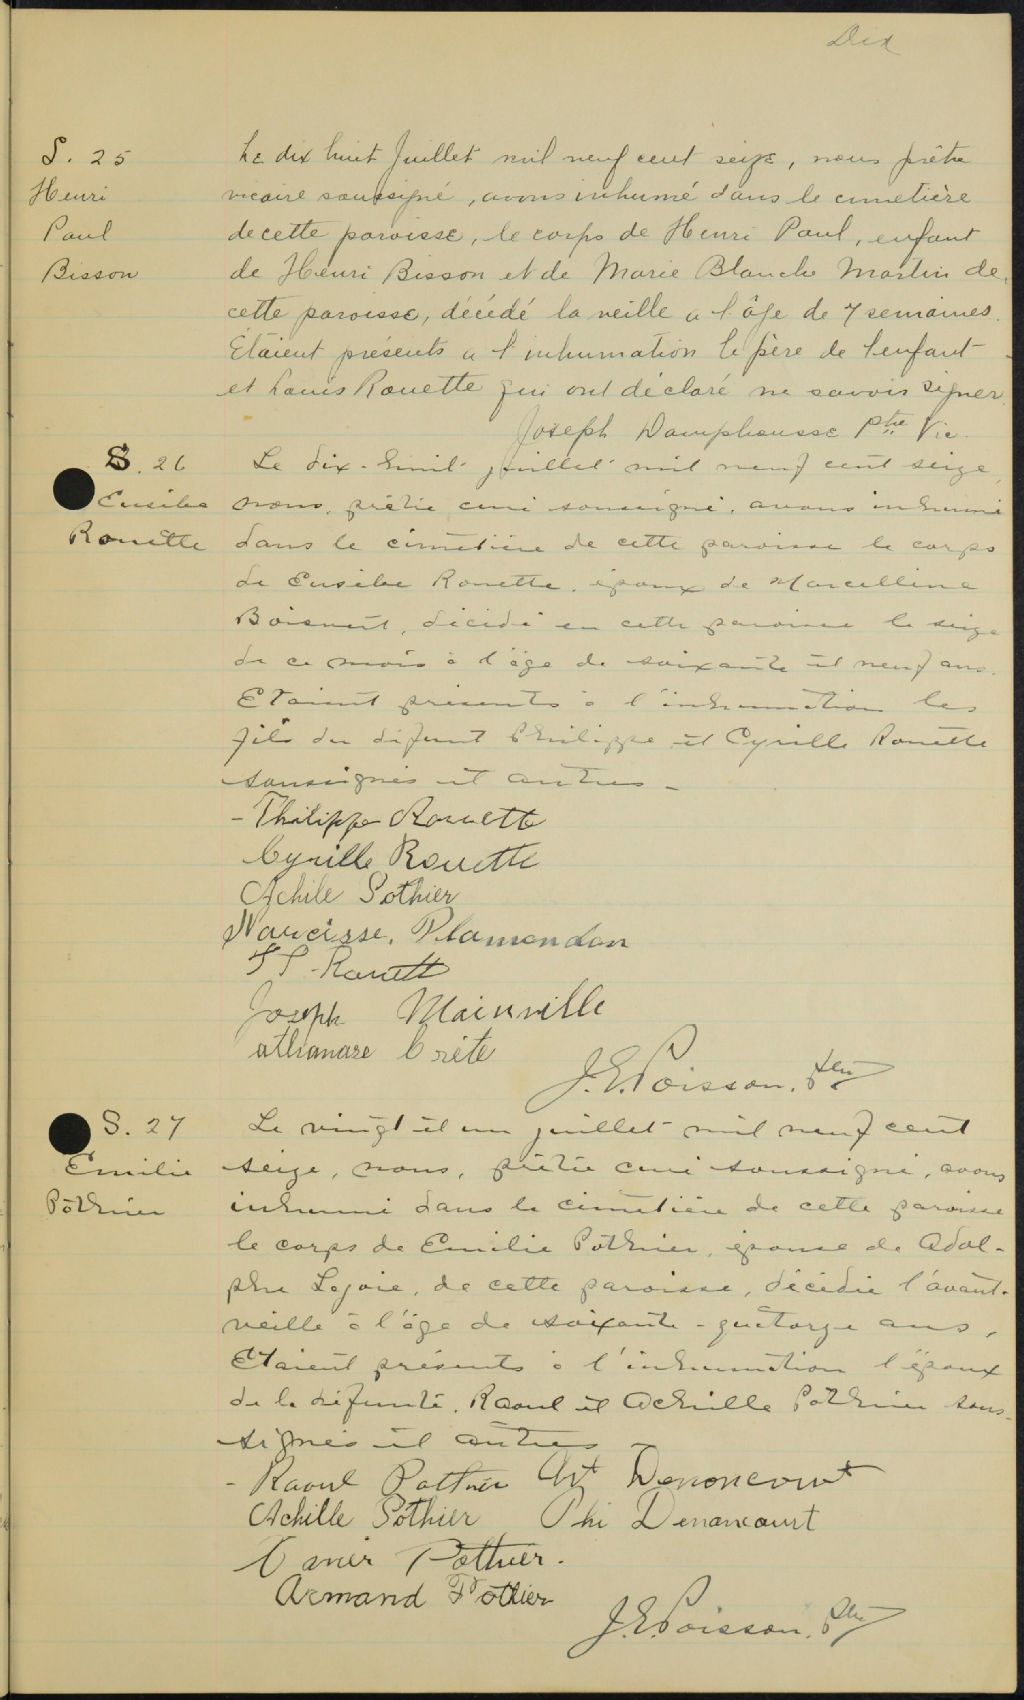 Dix
S. 25
Henri
Paul
Bisson
Le dix huit Juillet mil neuf cent seize, nous prêtre
vicaire soussigné, avons inhumé dans le cimetière
de cette paroisse, le corps de Henri Paul, enfant
de Henri Bisson et de Marie Blanche Martin de
cette paroisse, décédé la veille a l'âge de 7 semaines.
Étaient présents a l'inhumation le père de l'enfant
et Louis Rouette qui ont déclaré ne savoir signer.
Joseph Damphousse Ptre Vic.
S. 26
Eusèbe
Rouette
Le dix-huit juillet mil neuf cent seize,
nous, prêtre curé soussigné, avons inhumé
dans le cimetière de cette paroisse le corps
de Eusèbe Rouette, époux de Marcelline
Boisvert, décédé en cette paroisse le seize
de ce mois à l'âge de soixante et neuf ans.
Etaient présents à l'inhumation les
fils du défunt Philippe et Cyrille Rouette
soussignés et autres -
- Philippe Rouette
Cyrille Rouette
Achile Pothier
Narcisse. Plamondon
Rouett
Joseph Mainville
athanase Crête
J.E. Poisson, Ptre
S. 27
Emilie
Pothier
Le vingt et un juillet mil neuf cent
seize, nous, prêtre curé soussigné, avons
inhumé dans le cimetière de cette paroisse
le corps de Emilie Pothier, épouse de Adol-
phe Lajoie, de cette paroisse, décédée l'avant-
veille à l'âge de soixante-quatorze ans.
Etaient présents à l'inhumation l'époux
de la défunte, Raoul et Achille Pothier sous-
signés et autres -
- Raoul Pothier Art Denoncourt
Achille Pothier Phi Denoncourt
Pothier.
Armand Pothier
J.E. Poisson, Ptre